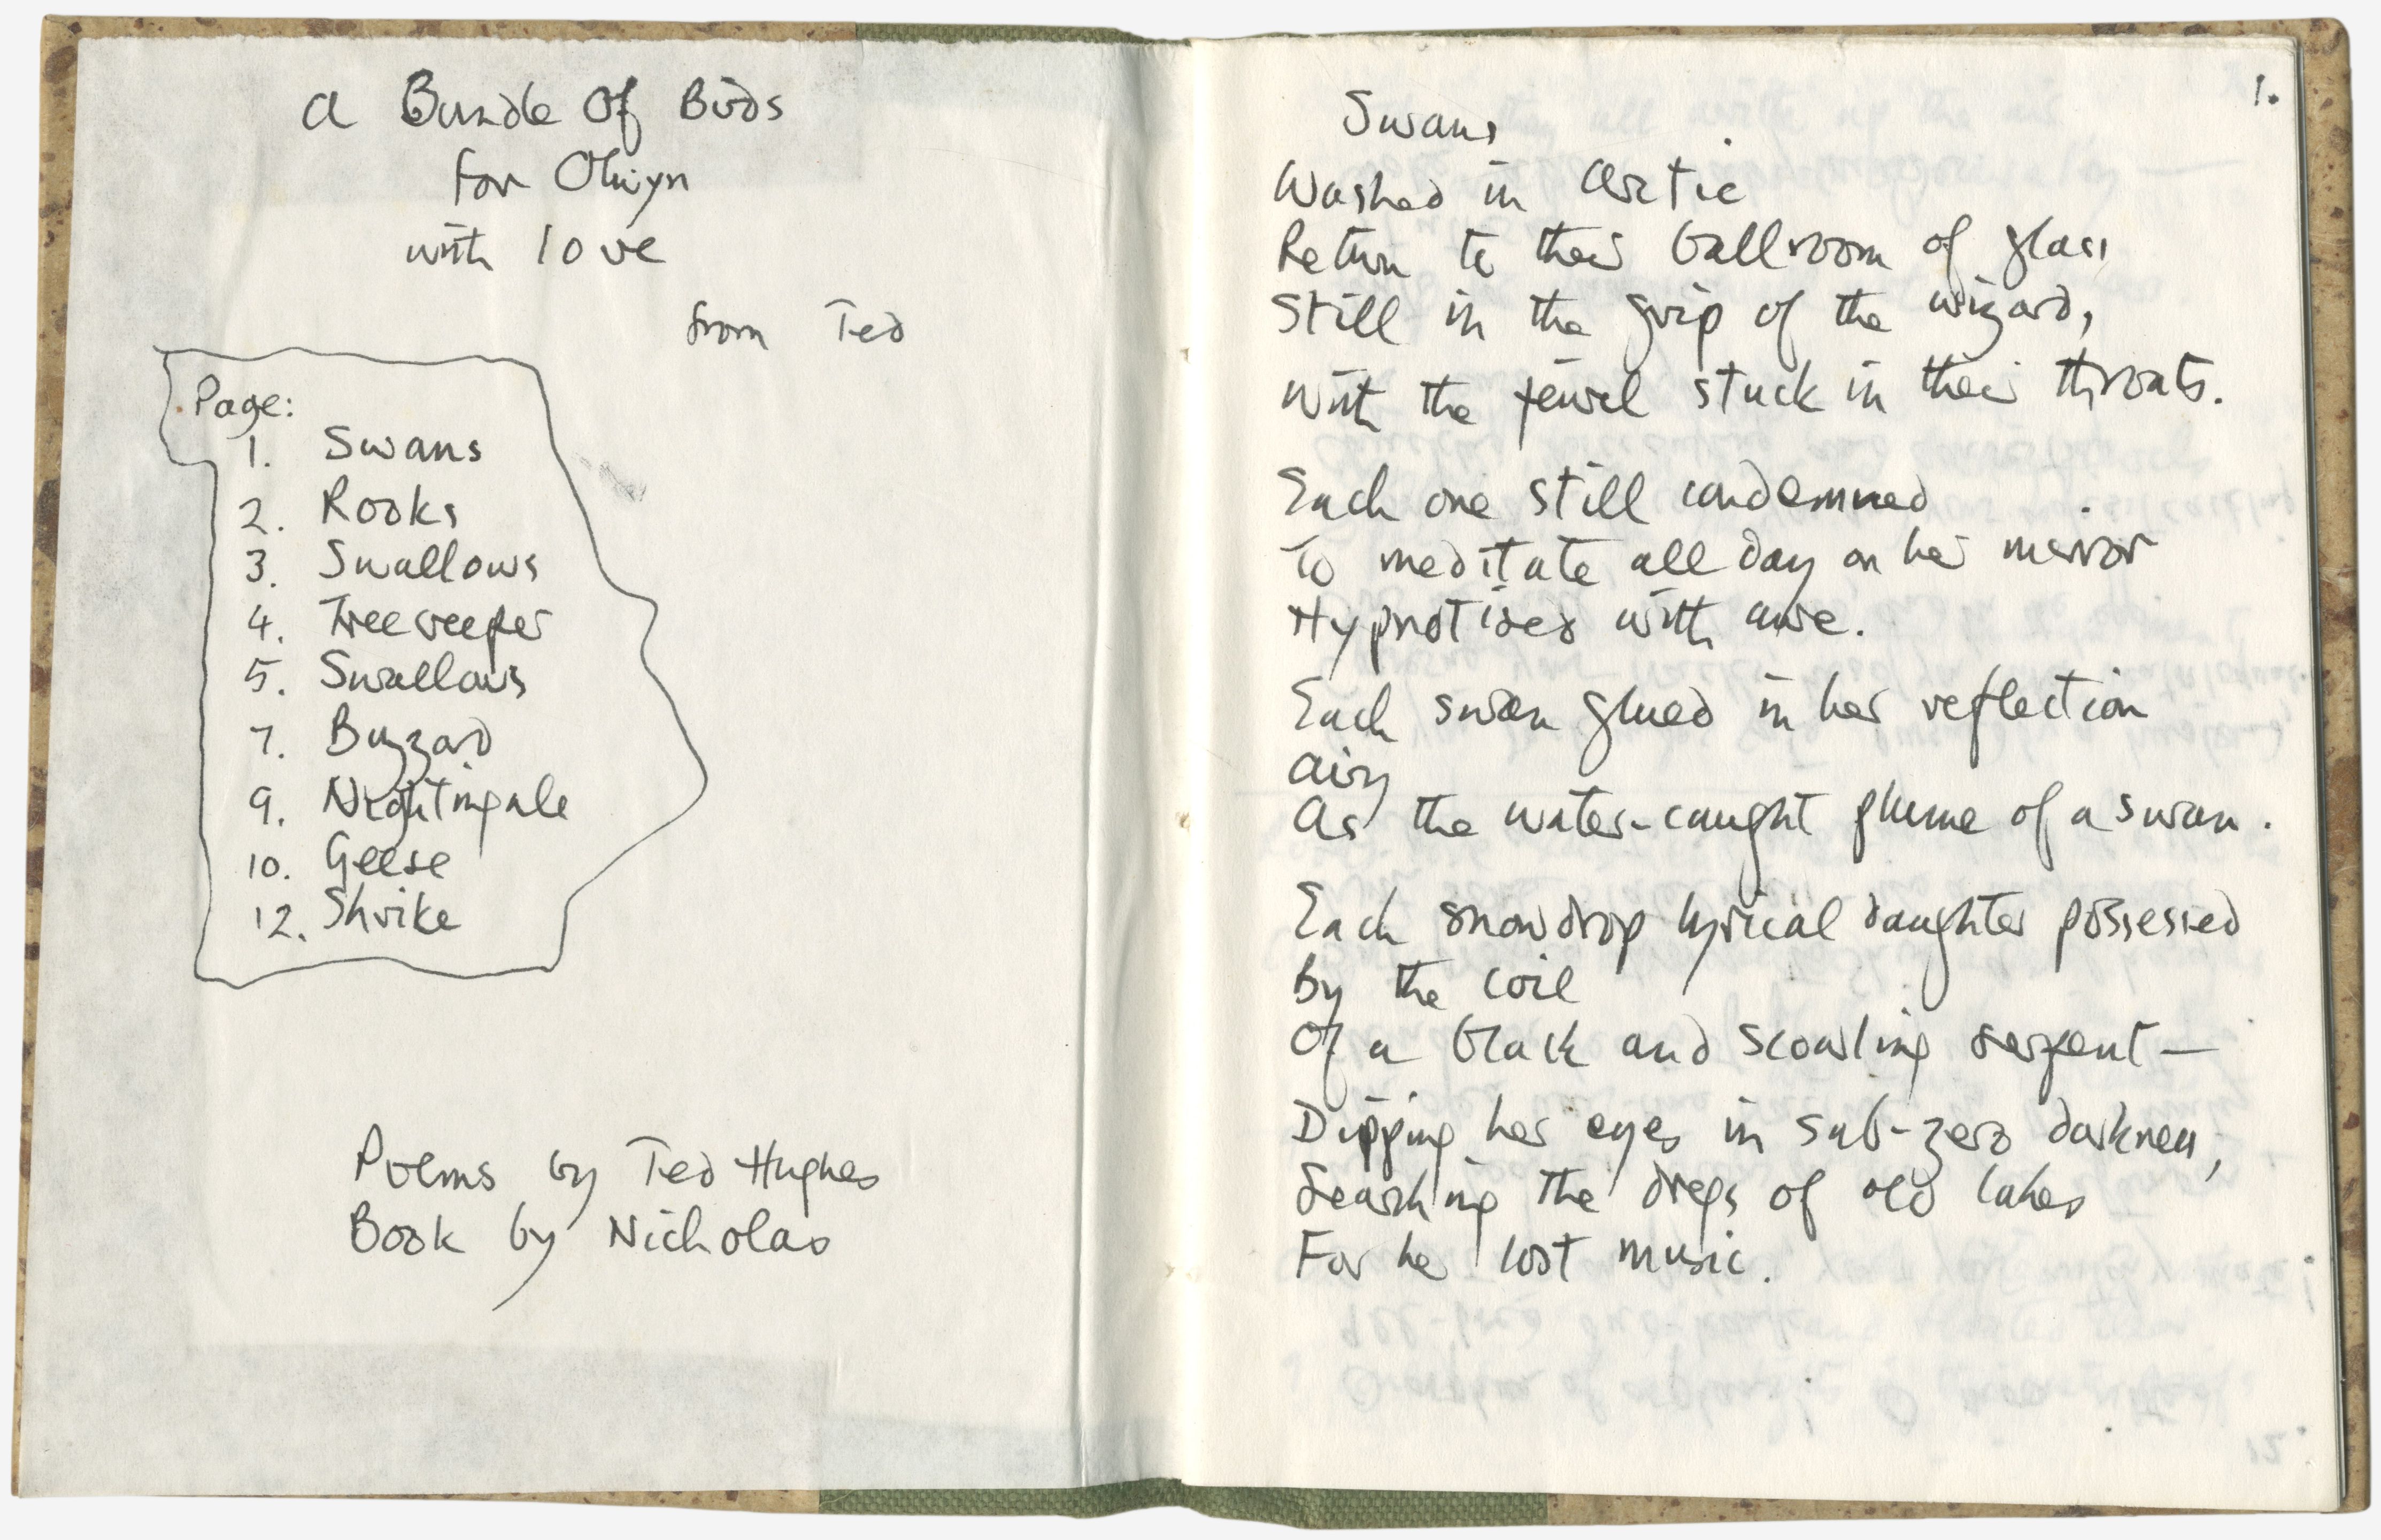 A Bundle Of Birds
for Olwyn
with love
from Ted
Page:
1. Swans
2. Rooks
3. Swallows
4. Treecreeper
5. Swallows
7. Buzzard
9. Nightingale
10. Geese
12. Shrike
Poems by Ted Hughes
Book by Nicholas
1.
Swans
Washed in Arctic
Return to their ballroom of glass
Still in the grip of the wizard,
With the jewel stuck in their throats.
Each one still condemned
To meditate all day on her mirror
Hypnotised with awe.
Each swan glued in her reflection
Airy
As the water-caught plume of a swan.
Each snowdrop lyrical daughter possessed
By the coil
Of a black and scowling serpent—
Dipping her eyes in sub-zero darkness,
Searching the dregs of old lakes
For her lost music.
12.